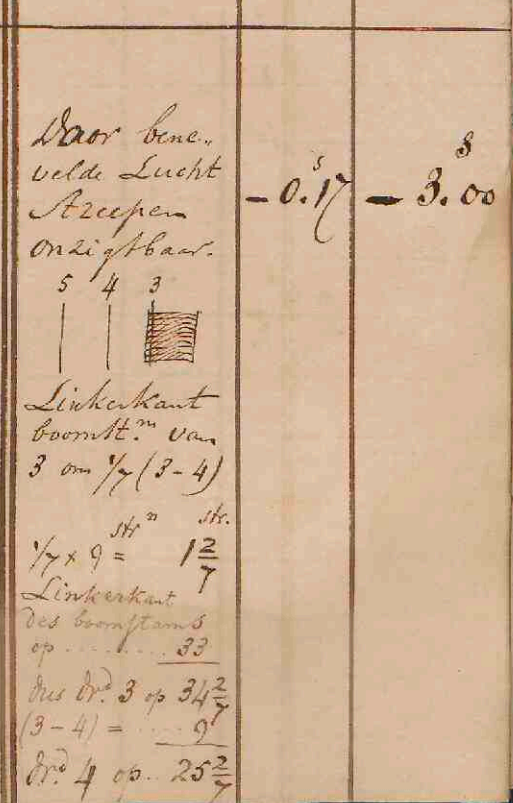 Daar bene„
velde Lucht
Streepen
onzigtbaar.
- 0.17 s
- 3.00 s
5 4 3
Linkerkant
boomst.m van
3 om 1/7 (3-4)
str n str.
1/7 × 9 = 1 2/7
Linkerkant
des boomstams
op ......... 33
dus dr.d 3 op 34 2/7
(3-4) = .... 9
dr.d 4 op .. 25 2/7